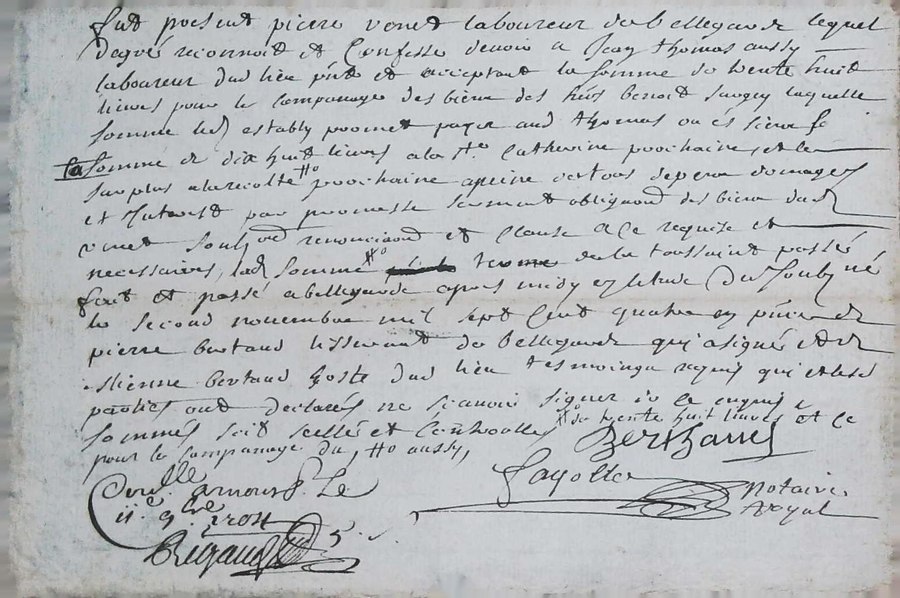 fut present pierre venet laboureur de bellegarde lequel
de gré reconnoit et Confesse devoir a Jean thomas aussy
laboureur dud lieu pnt et acceptant la somme de trente huit
livres pour le Companage des biens des hers benoit laquelle
somme led estably promet payer aud thomas ou es siens
la somme de dix huit livres a la Ste Catherine prochaine, et le
surplus a la recolte prochaine a peine de tous depens domages
et Interest par promesse serment obligaond des biens dud
venet renonciaond et Clause a ce requise et
necessaires, lad somme terme de la toussaint passée
fait et passé a bellegarde apres midy en letude du soubzné
le second novembre mil sept Cent quatre en pnce de
pierre bertaud tisserand de bellegarde qui a signé et de
estienne bertaud hoste dud lieu tesmoings requis qui et lesd
parties ont declarés ne scavoir signer de ce enquis
sommés soit scellé et Controollé de trente huit livres et ce
pour le Companage du aussy,
Berthaud
Fayolle
notaire
royal